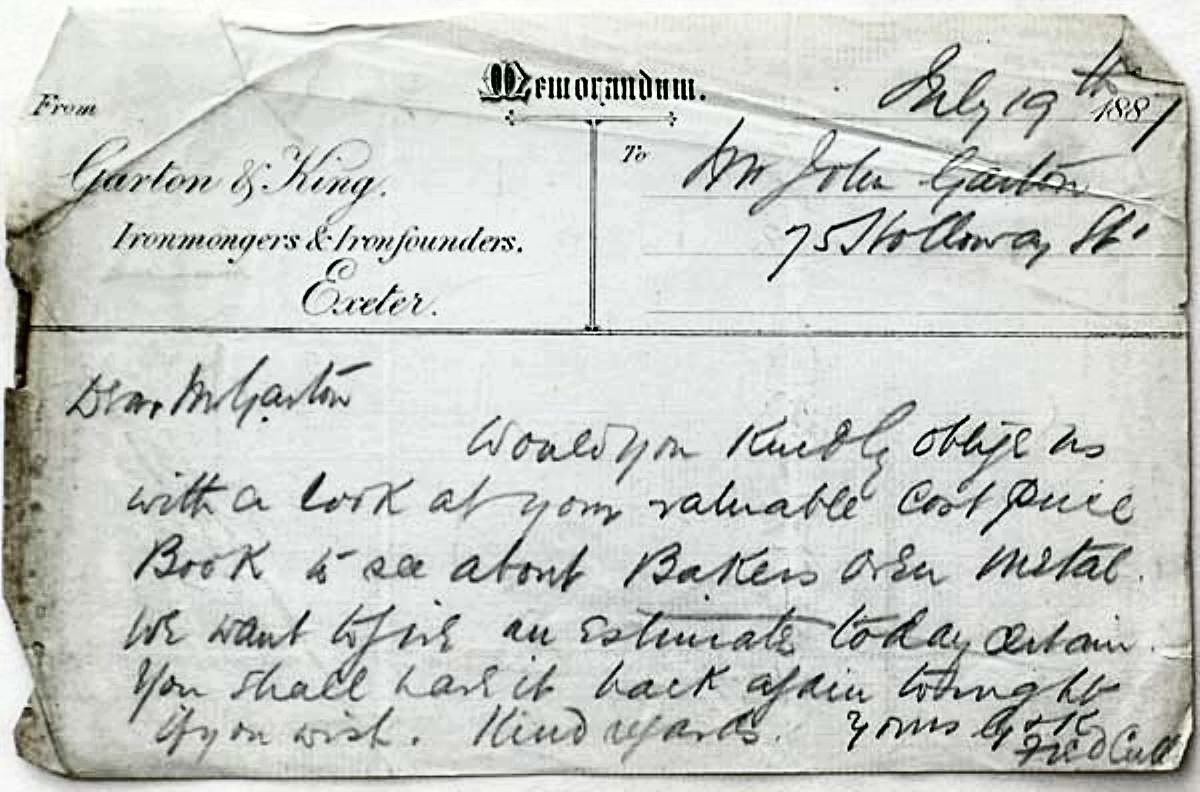 Memorandum.
From
July 19th 1887
Garton & King.
Ironmongers & Ironfounders.
Exeter.
To
Mr John Garton
75 Holloway St.
Dear Mr Garton
Would you Kindly oblige us
with a look at your valuable Cost Price
Book to see about Bakers Oven Metal.
We want to give an Estimate today certain.
You shall have it back again tonight
if you wish. Kind regards. Yours G & K
Fred